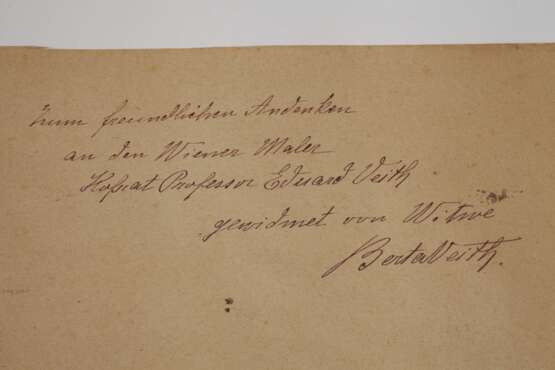 Zum freundlichen Andenken
an den Wiener Maler
Hofrat Professor Eduard Veith
gewidmet von Witwe
Berta Veith.